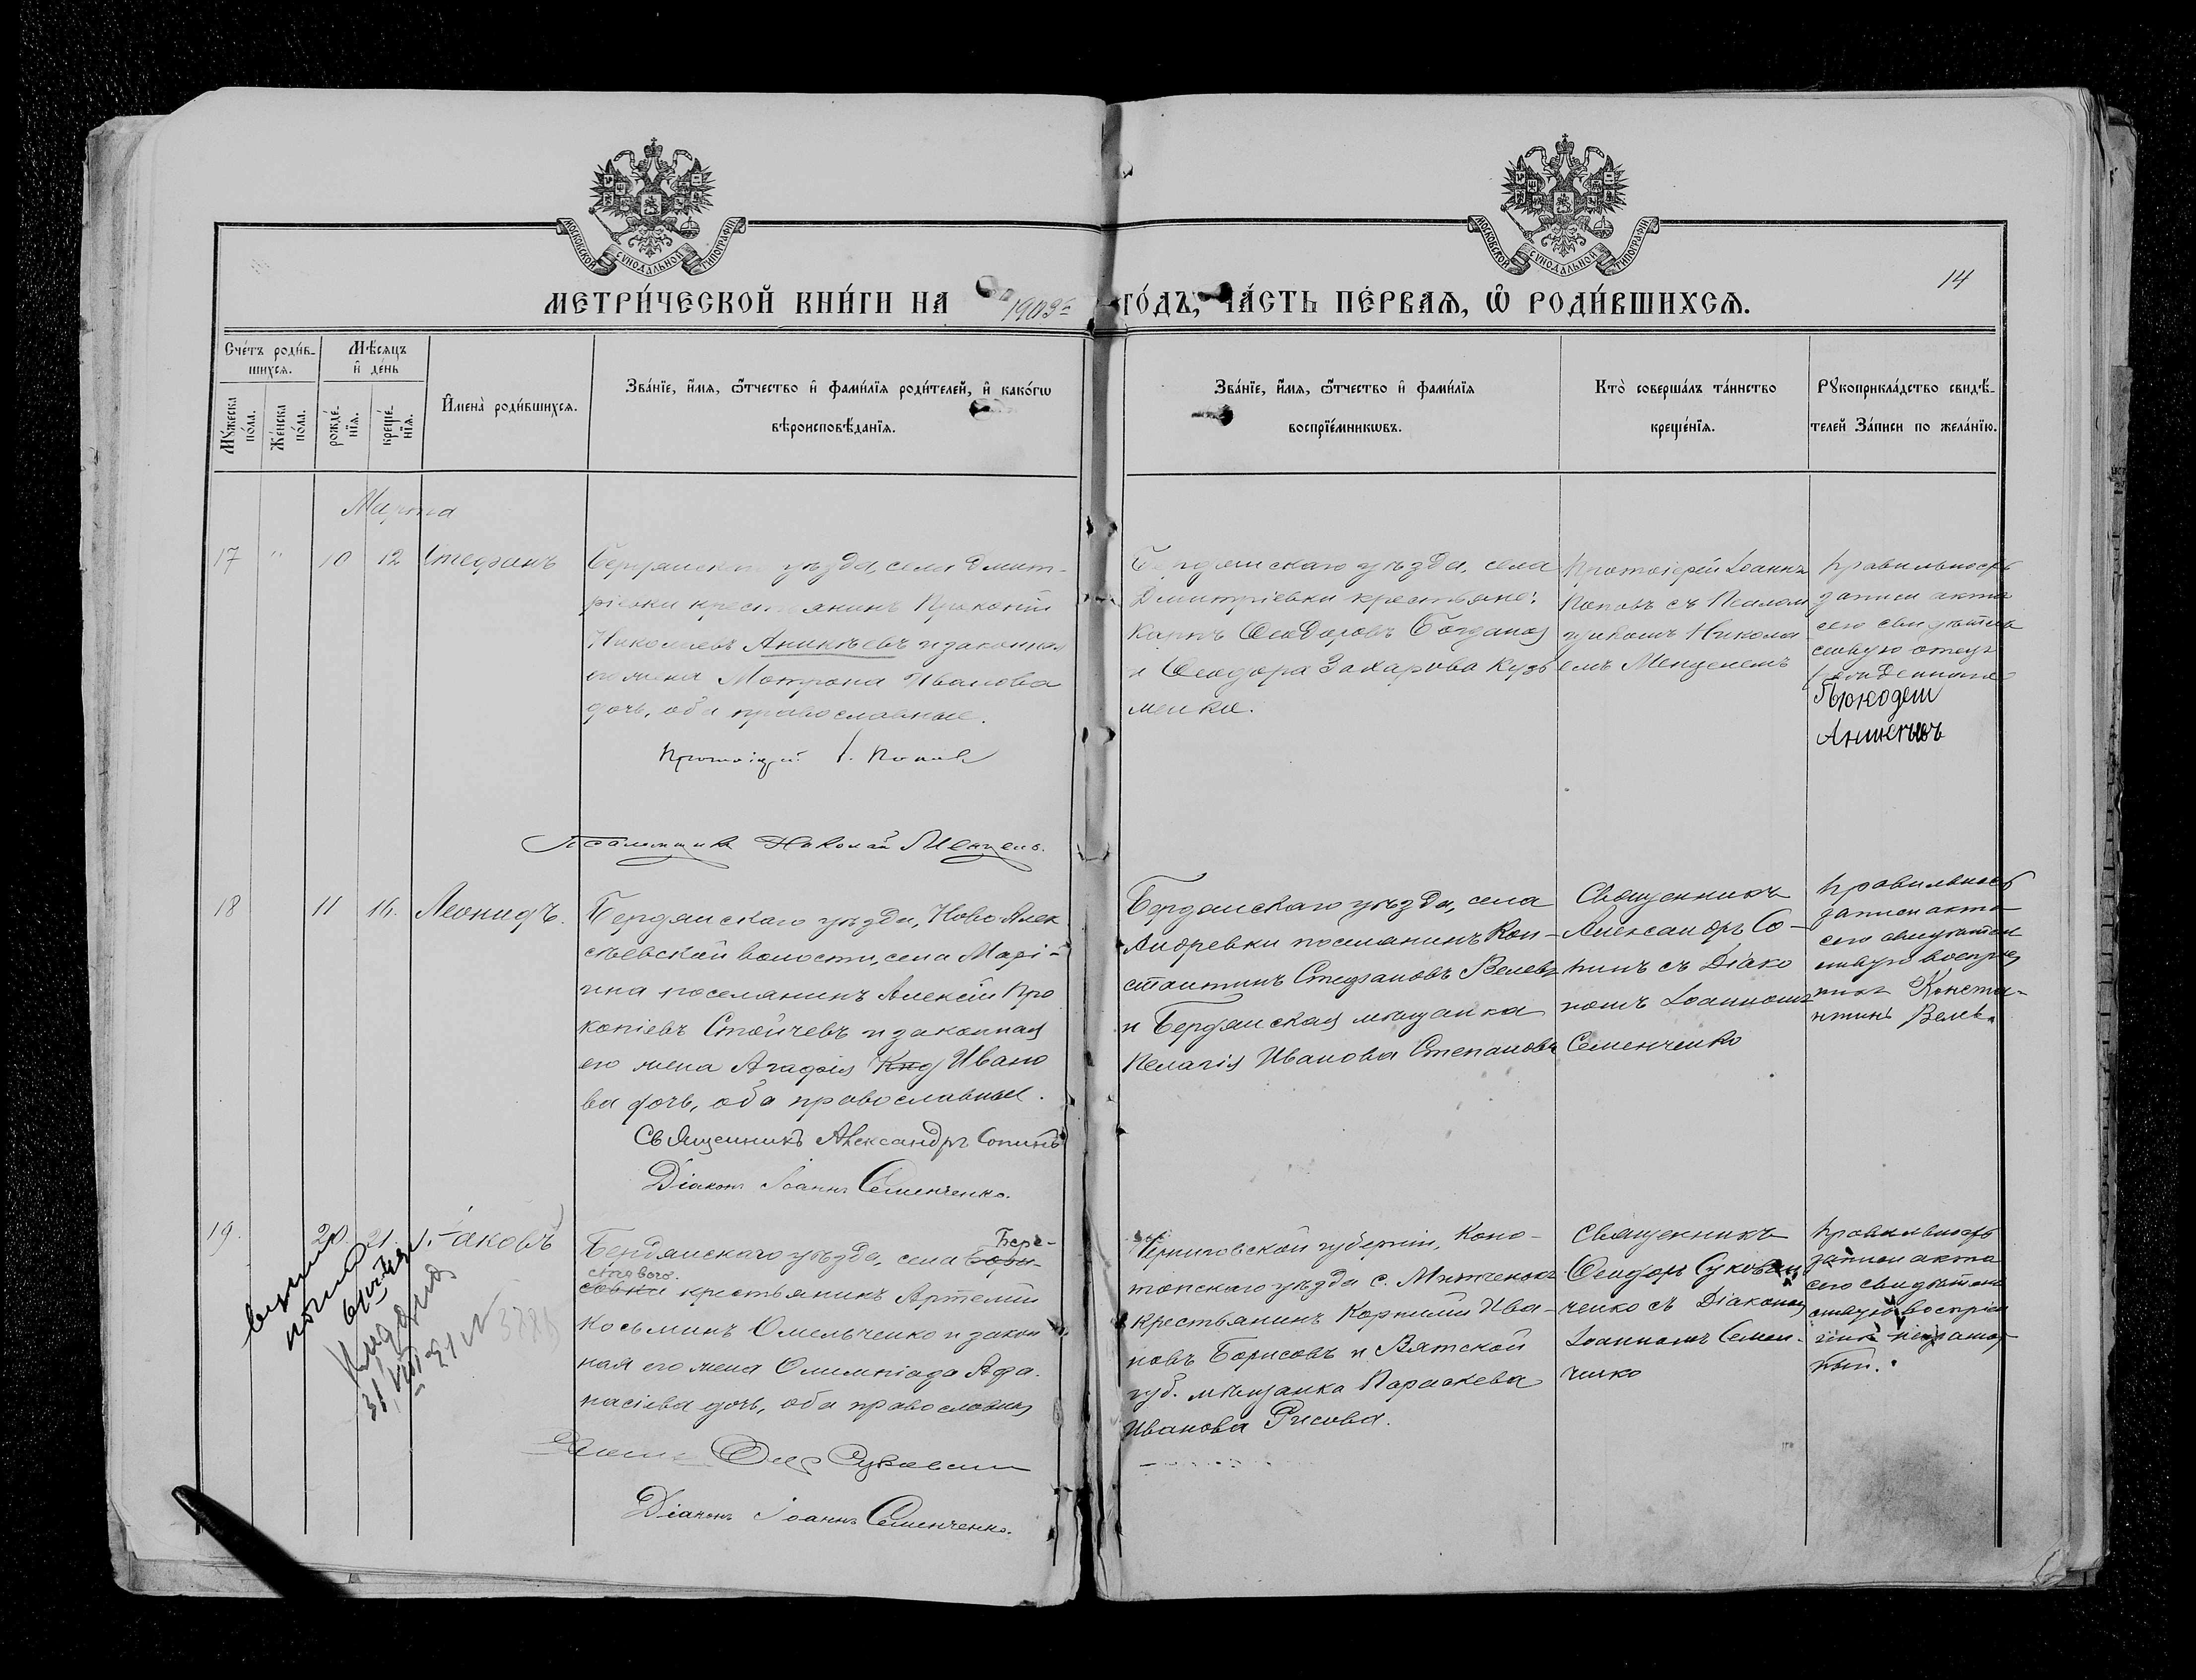 МОСКОВСКОЙ СУНОДАЛЬНОЙ ТИПОГРАФІИ
МОСКОВСКОЙ СУНОДАЛЬНОЙ ТИПОГРАФІИ
14
МЕТРИ́ЧЕСКОЙ КНИ́ГИ НА 1903й ГО́ДЪ, ЧА́СТЬ ПЕ́РВАЯ, Ѡ҃ РОДИ́ВШИХСЯ.
Сче́тъ роди́в-
шихся.
Мѣ́сяцъ
и҆ де́нь
Мꙋ́жеска по́ла.
Же́нска по́ла.
рожде́-
нїя.
креще́-
нїя.
И҆мена̀ роди́вшихся.
Зва́нїе, и҆́мя, ѻ҆́тчество и҆ фами́лїя роди́телей, и҆ како́гѡ
вѣроисповѣ́данїя.
Зва́нїе, и҆́мя, ѻ҆́тчество и҆ фами́лїя
воспрїе́мникѡвъ.
Кто̀ соверша́лъ та́инство
креще́нїя.
Рꙋкоприкла́дство свидѣ́-
телей за́писи по жела́нїю.
Марта
17 " 10 12 Стефанъ
Бердянскаго уѣзда, села Дмит-
ріевки крестьянинъ Прокопій
Николаевъ Аникѣевъ и законная
его жена Мотрона Иванова
дочь, оба православные.
Протоіерей І. Поповъ
Псаломщикъ Николай Менцель.
Бердянскаго уѣзда, села
Дмитріевки крестьяне:
Феодоровъ Богданов
и Феодора Захарова Кузь
менко.
Протоіерей Іоаннъ
Поповъ съ Псалом
щикомъ Никола-
емъ Менцелемъ
Правильность
записи акта
сего свидѣтель
ствую отецъ
Аникѣевъ
18 11 16. Леонидъ.
Бердянскаго уѣзда, Ново Алек
сѣевской волости, села Марі-
ина поселянинъ Алексій Про
копіевъ Стойчевъ и законная
его жена Агафія Ивано
ва дочь, оба православные.
Священникъ Александръ Сопинъ
Діаконъ Іоаннъ Семенченко.
Бердянскаго уѣзда, села
Андревки поселянинъ Кон-
стантинъ Стефановъ Велевъ
и Бердянская мѣщанка
Пелагія Иванова Степанова
Священникъ
Александръ Со-
пинъ съ Діако
номъ Іоанномъ
Семенченко
Правильность
записи акта
сего свидѣтель
ствую воспріем
никъ Конста-
нтинъ Велевъ.
19. 20. 21. Іаковъ
Бердянскаго уѣзда, села Бере-
стоваго.
крестьянинъ Артемій
Косьминъ Омельченко и закон
ная его жена Олимпіада Афа-
насіева дочь, оба православныя
Діаконъ Іоаннъ Семенченко.
Черниговской губерніи, Коно-
топскаго уѣзда с. Митченокъ
крестьянинъ Корнилій Ива-
новъ Борисовъ и Вятской
губ. мѣщанка Параскева
Иванова Рысова.
Священникъ
Феодоръ Суков
ченко съ Діакономъ
Іоанномъ Семен-
ченко
Правильность
записи акта
сего свидѣтель
ствую воспріем
никъ неграмот
ный.
31